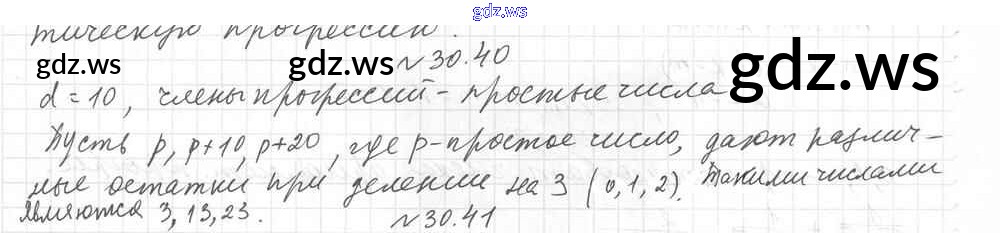 gdz.ws
тическую прогрессии.
gdz.ws gdz.ws №30.40 gdz.ws
d=10, члены прогрессий - простые числа
Пусть p, p+10, p+20, где p-простое число, дают различ-
ные остатки при делении на 3 (0,1,2). Такими числами
являются 3, 13, 23.
№30.41